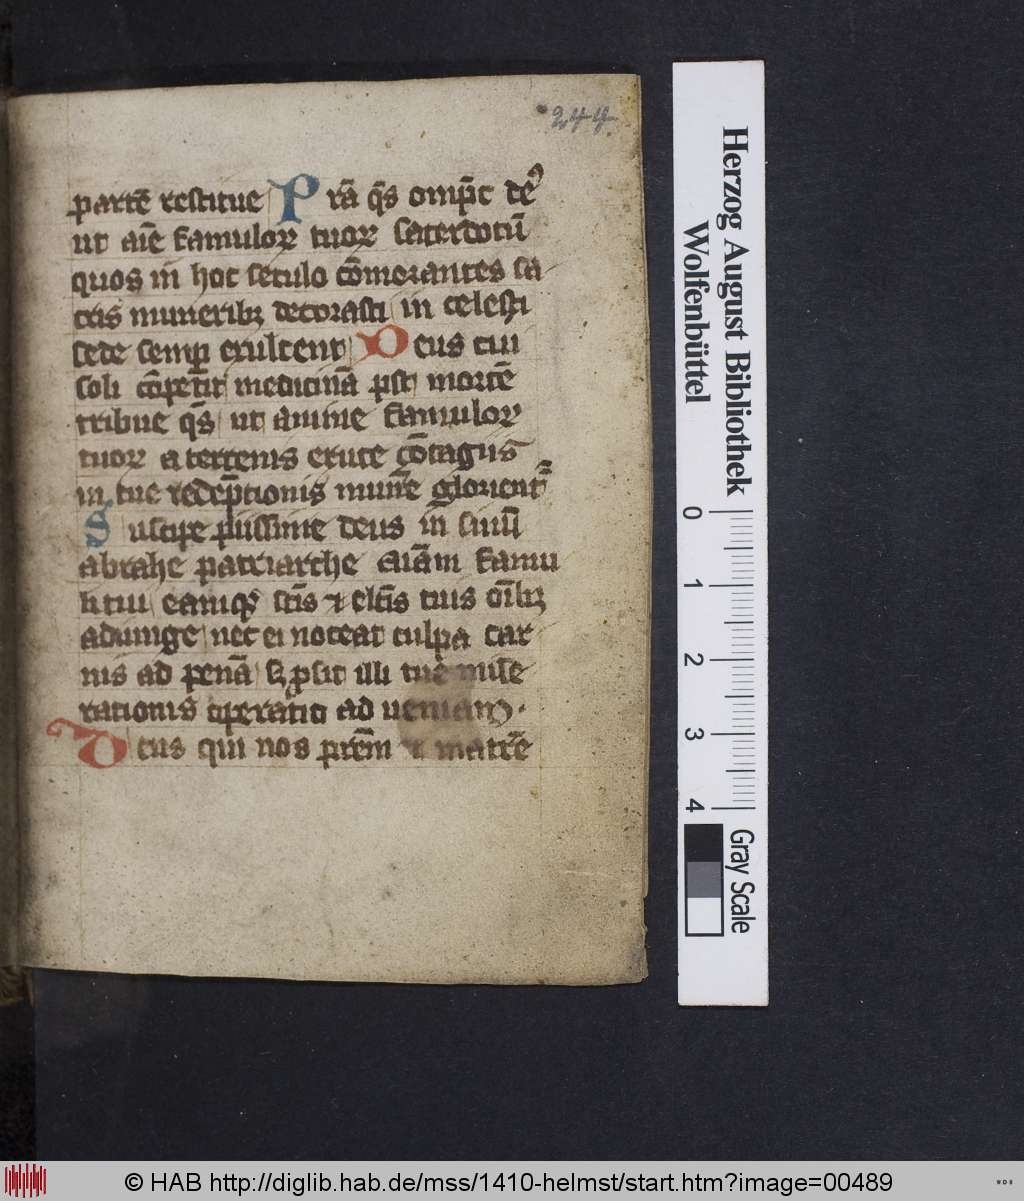 244.
partē restitue Prā q̄s omp̄c de᷒
ut aīe famuloꝝ tuoꝝ sacerdotū
quos in hoc seculo cōmorantes sa-
cris muneribꝫ decorasti in celesti
sede semꝑ exultent Deus cui
soli cōpetit medicinā pst mortē
tribue q̄s ut anime famuloꝝ
tuoꝝ a terrenis exute cōtagiis
in tue redēptionis mune glorient᷑
Suscipe piissime deus in sinū
abrahe patriarche aīam famu
li tui eamqꝫ scīs ⁊ elc̄is tuis oīƀꝫ
adiunge nec ei noceat culpa car
nis ad penā sꝫ ꝓsit illi tue mise
rationis ad veniam.
Deus qui nos prēm ⁊ matrē
Herzog August Bibliothek
Wolfenbüttel
0 1 2 3 4
Gray Scale
© HAB http://diglib.hab.de/mss/1410-helmst/start.htm?image=00489